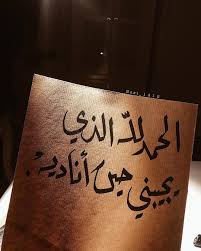 الحمد لله الذي
يجيبني حين أناديه